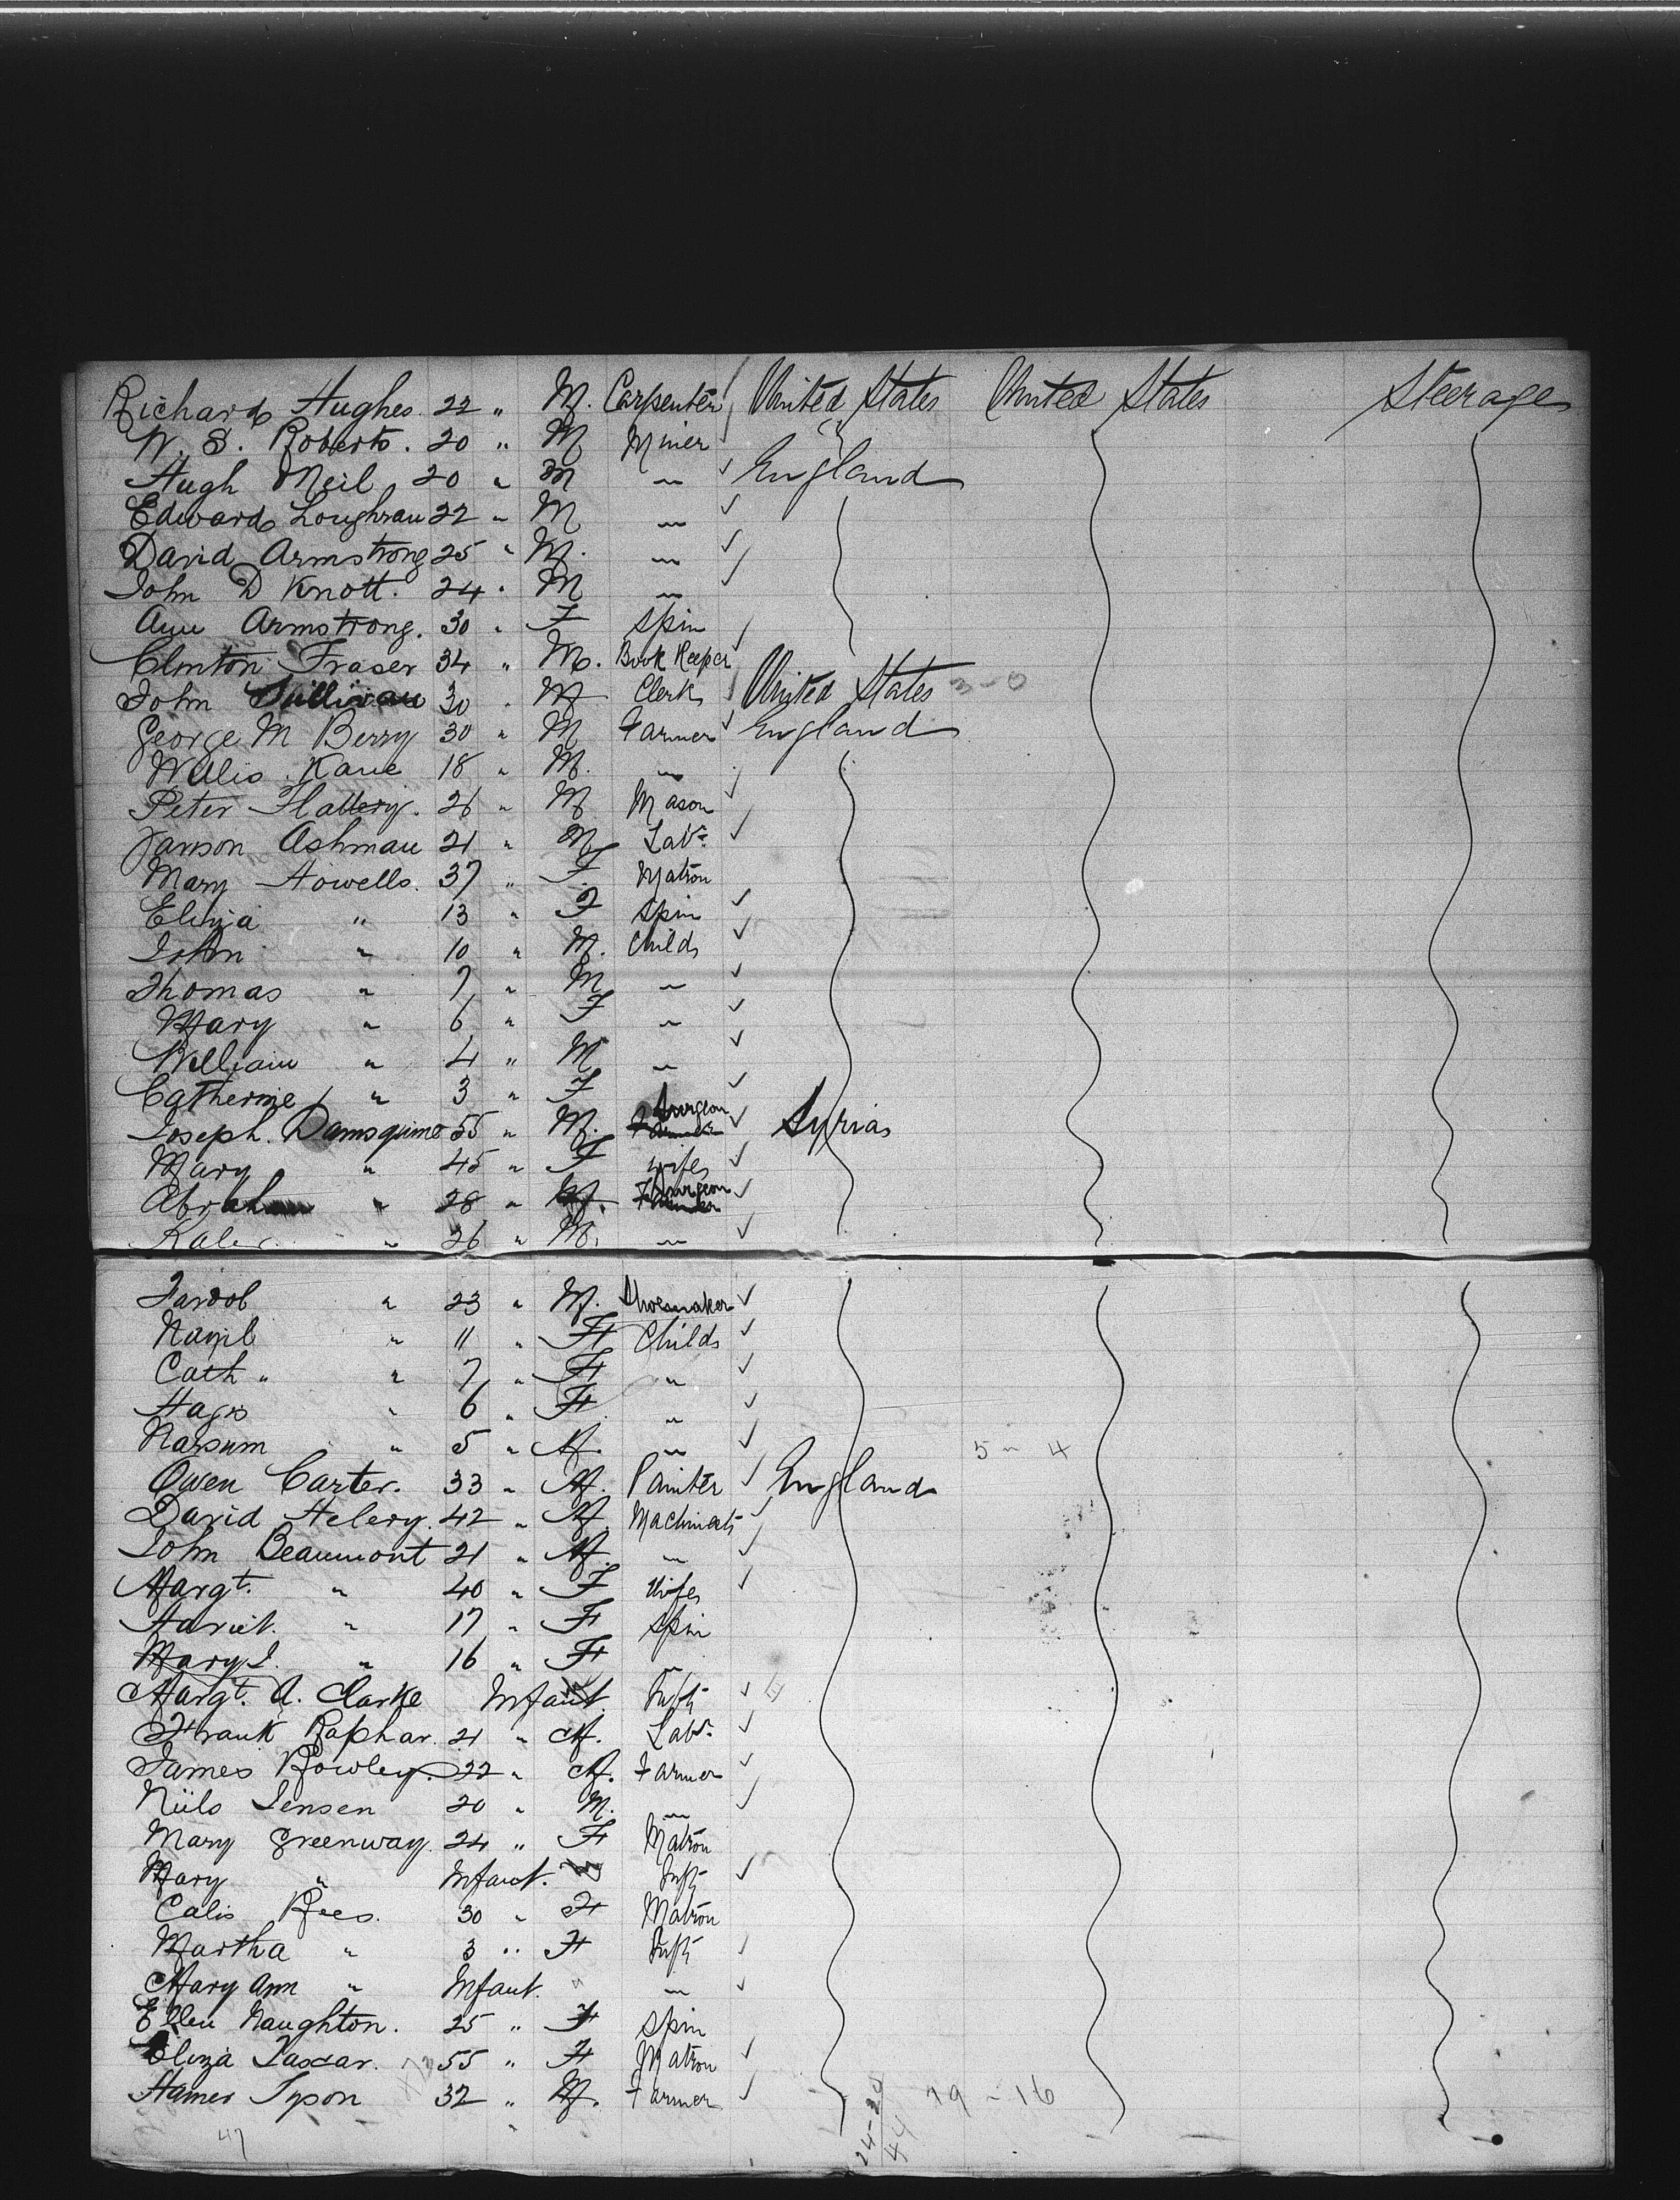 Richard Hughes. 22 " M. Carpenter United States United States Steerage
W. S. Roberts. 20 " M Miner
Hugh Neil 20 " M " England
Edward Loughran 22 " M "
David Armstrong 25 " M. "
John D Knott. 24 " M "
Ann Armstrong. 30 " F Spin
Clinton Fraser 34 " M. Book Keeper
John Sullivan 30 " M Clerk United States 3-0
George M Berry 30 " M Farmer England
Willis Kane 18 " M. "
Peter Flattery. 26 " M Mason
Janson Ashman 21 " M Labr.
Mary Howells. 37 " F. Matron
Eliza " 13 " F Spin
John " 10 " M. Child
Thomas " 7 " M "
Mary " 6 " F "
William " 4 " M "
Catherine " 3 " F
Joseph. 55 " M. Surgeon Syria
Mary " 45 " F Wife
" 28 " M. Surgeon
Kaler " 26 " M. "
" 23 " M. Shoemaker
" 11 " F Child
Cath " " 7 " F "
" 6 " F "
" 5 " M. " 5 - 4
Owen Carter. 33 " M. Painter England
David Helery. 42 " M. Machinest
John Beaumont 21 " M. "
Margt. " 40 " F Wife
Hariet. " 17 " F Spin
Mary J. " 16 " F "
Margt. A. Clarke Infant Inft
Frank Raphar. 21 " M. Labr.
James Rowley. 22 " M. Farmer
Niils Jensen 20 " M. "
Mary Greenway. 24 " F Matron
Mary " Infant. Inft
Calis Rees. 30 " F Matron
Martha " 3 " F Inft
Mary Ann " Infant. " "
Ellen Naughton. 25 " F Spin
Eliza 55 " F Matron
Hamer Tyson 32 " M. Farmer 19 - 16
47 24-20
44